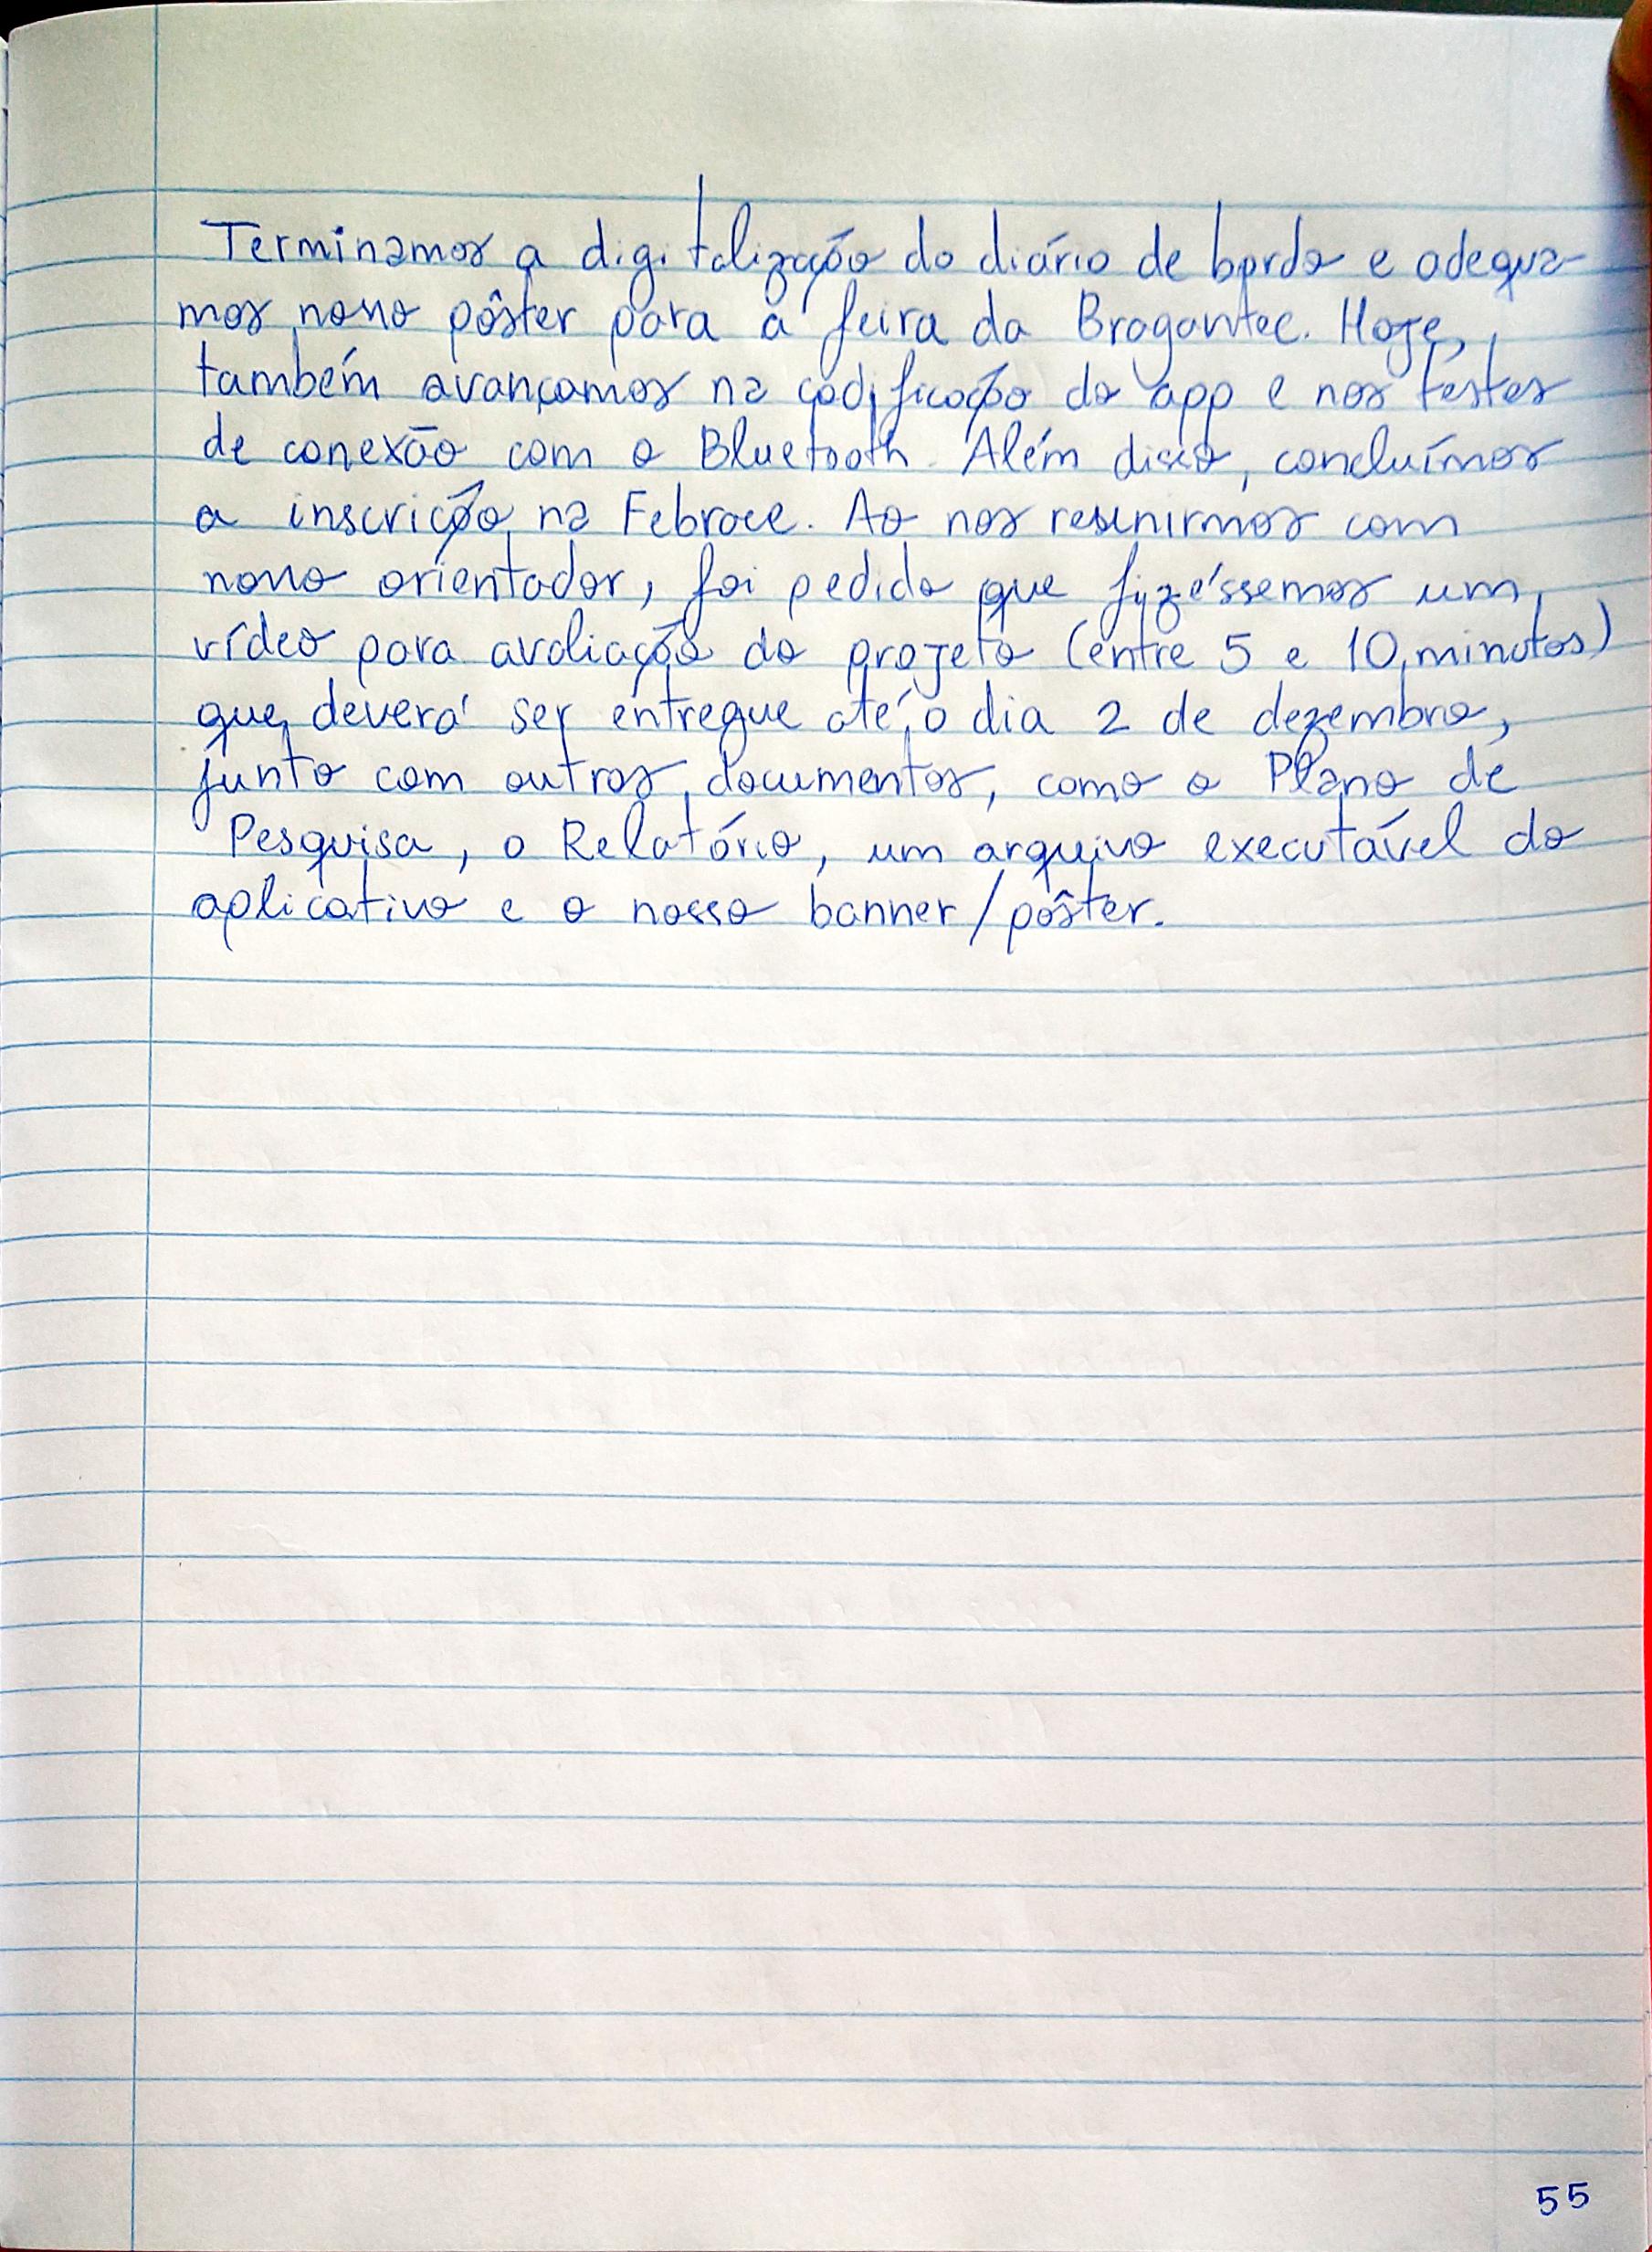 Terminamos a digitalização do diário de bordo e adequa-
mos nosso pôster para a feira da Bragantec. Hoje,
também avançamos na codificação do app e nos testes
de conexão com o Bluetooth. Além disso, concluímos
a inscrição na Febrace. Ao nos reunirmos com
nosso orientador, foi pedido que fizéssemos um
vídeo para avaliação do projeto (entre 5 e 10 minutos)
que deverá ser entregue até o dia 2 de dezembro,
junto com outros documentos, como o Plano de
Pesquisa, o Relatório, um arquivo executável do
aplicativo e o nosso banner/pôster.
55